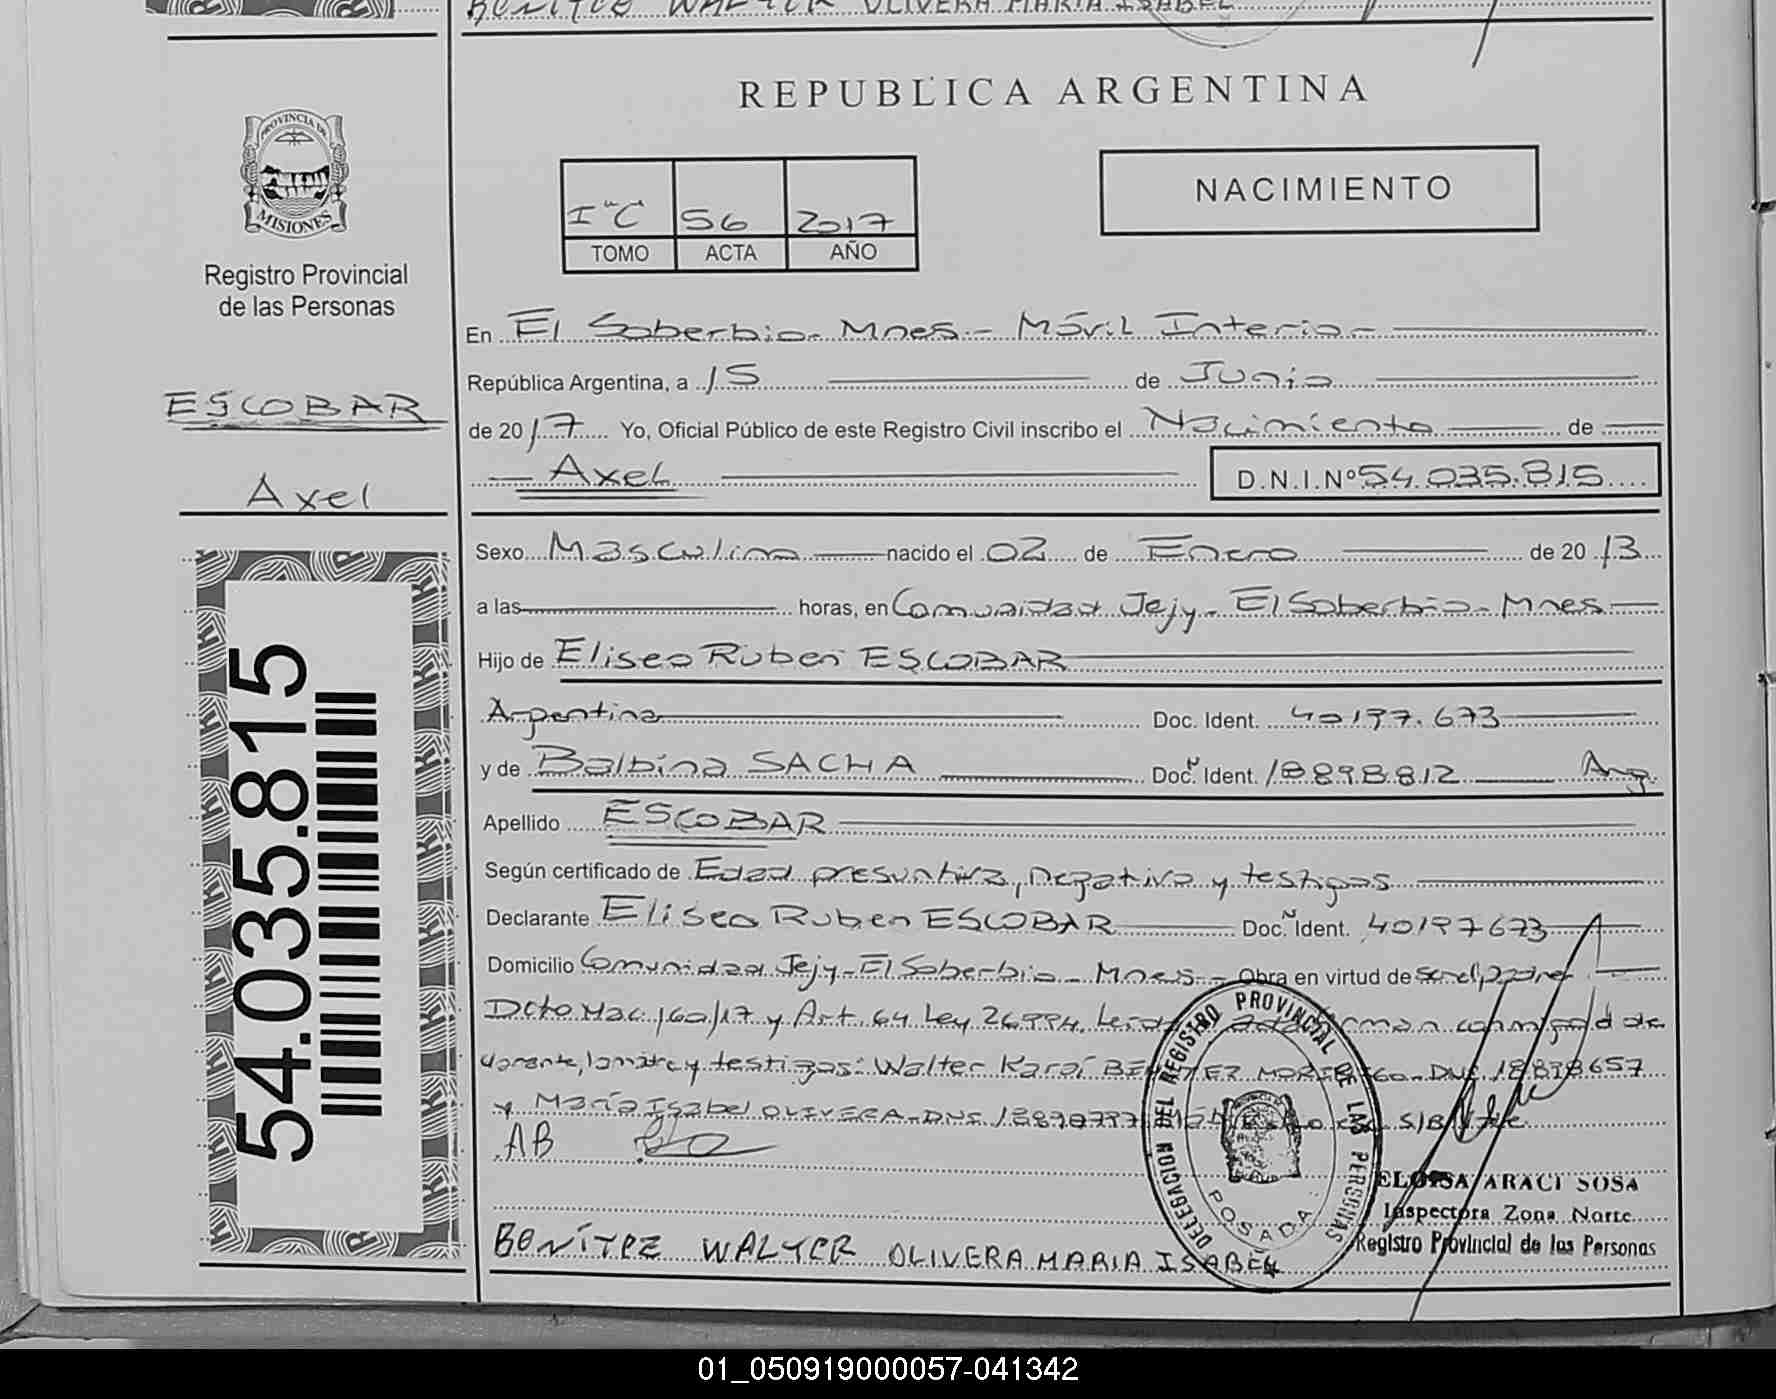 BENITEZ WALTER OLIVERA MARIA ISABEL
REPUBLICA ARGENTINA
PROVINCIA DE
MISIONES
Registro Provincial
de las Personas
ESCOBAR
Axel
54.035.815
I "C" 56 2017
TOMO ACTA AÑO
NACIMIENTO
En El Soberbio - Mnes - Móvil Interior
República Argentina, a 15 de Junio
de 2017 Yo, Oficial Público de este Registro Civil inscribo el Nacimiento de
Axel D.N.I.Nº 54.035.815
Sexo Masculino nacido el 02 de Enero de 2013
a las horas, en Comunidad Jejy - El Soberbio - Mnes
Hijo de Eliseo Ruben ESCOBAR
Argentina Doc. Ident. 40197.673
y de Balbina SACHA Doc. Ident. 18898.812 Arg.
Apellido ESCOBAR
Según certificado de Edad presuntiva, negativa y testigos
Declarante Eliseo Ruben ESCOBAR Doc. Ident. 40197673
Domicilio Comunidad Jejy - El Soberbio - Mnes - Obra en virtud de
Dcto Nac 160/17 y Art. 64 Ley 26994. Leída acta firman conmigo el de
clarante, la madre y testigos: Walter Karaí BENITEZ DNI 18898657
y María Isabel OLIVERA - DNI
AB
BENÍTEZ WALTER OLIVERA MARIA ISABEL
DELEGACION DEL REGISTRO PROVINCIAL DE LAS PERSONAS
POSADA
ELOISA ARACI SOSA
Inspectora Zona Norte
Registro Provincial de las Personas
01_050919000057-041342